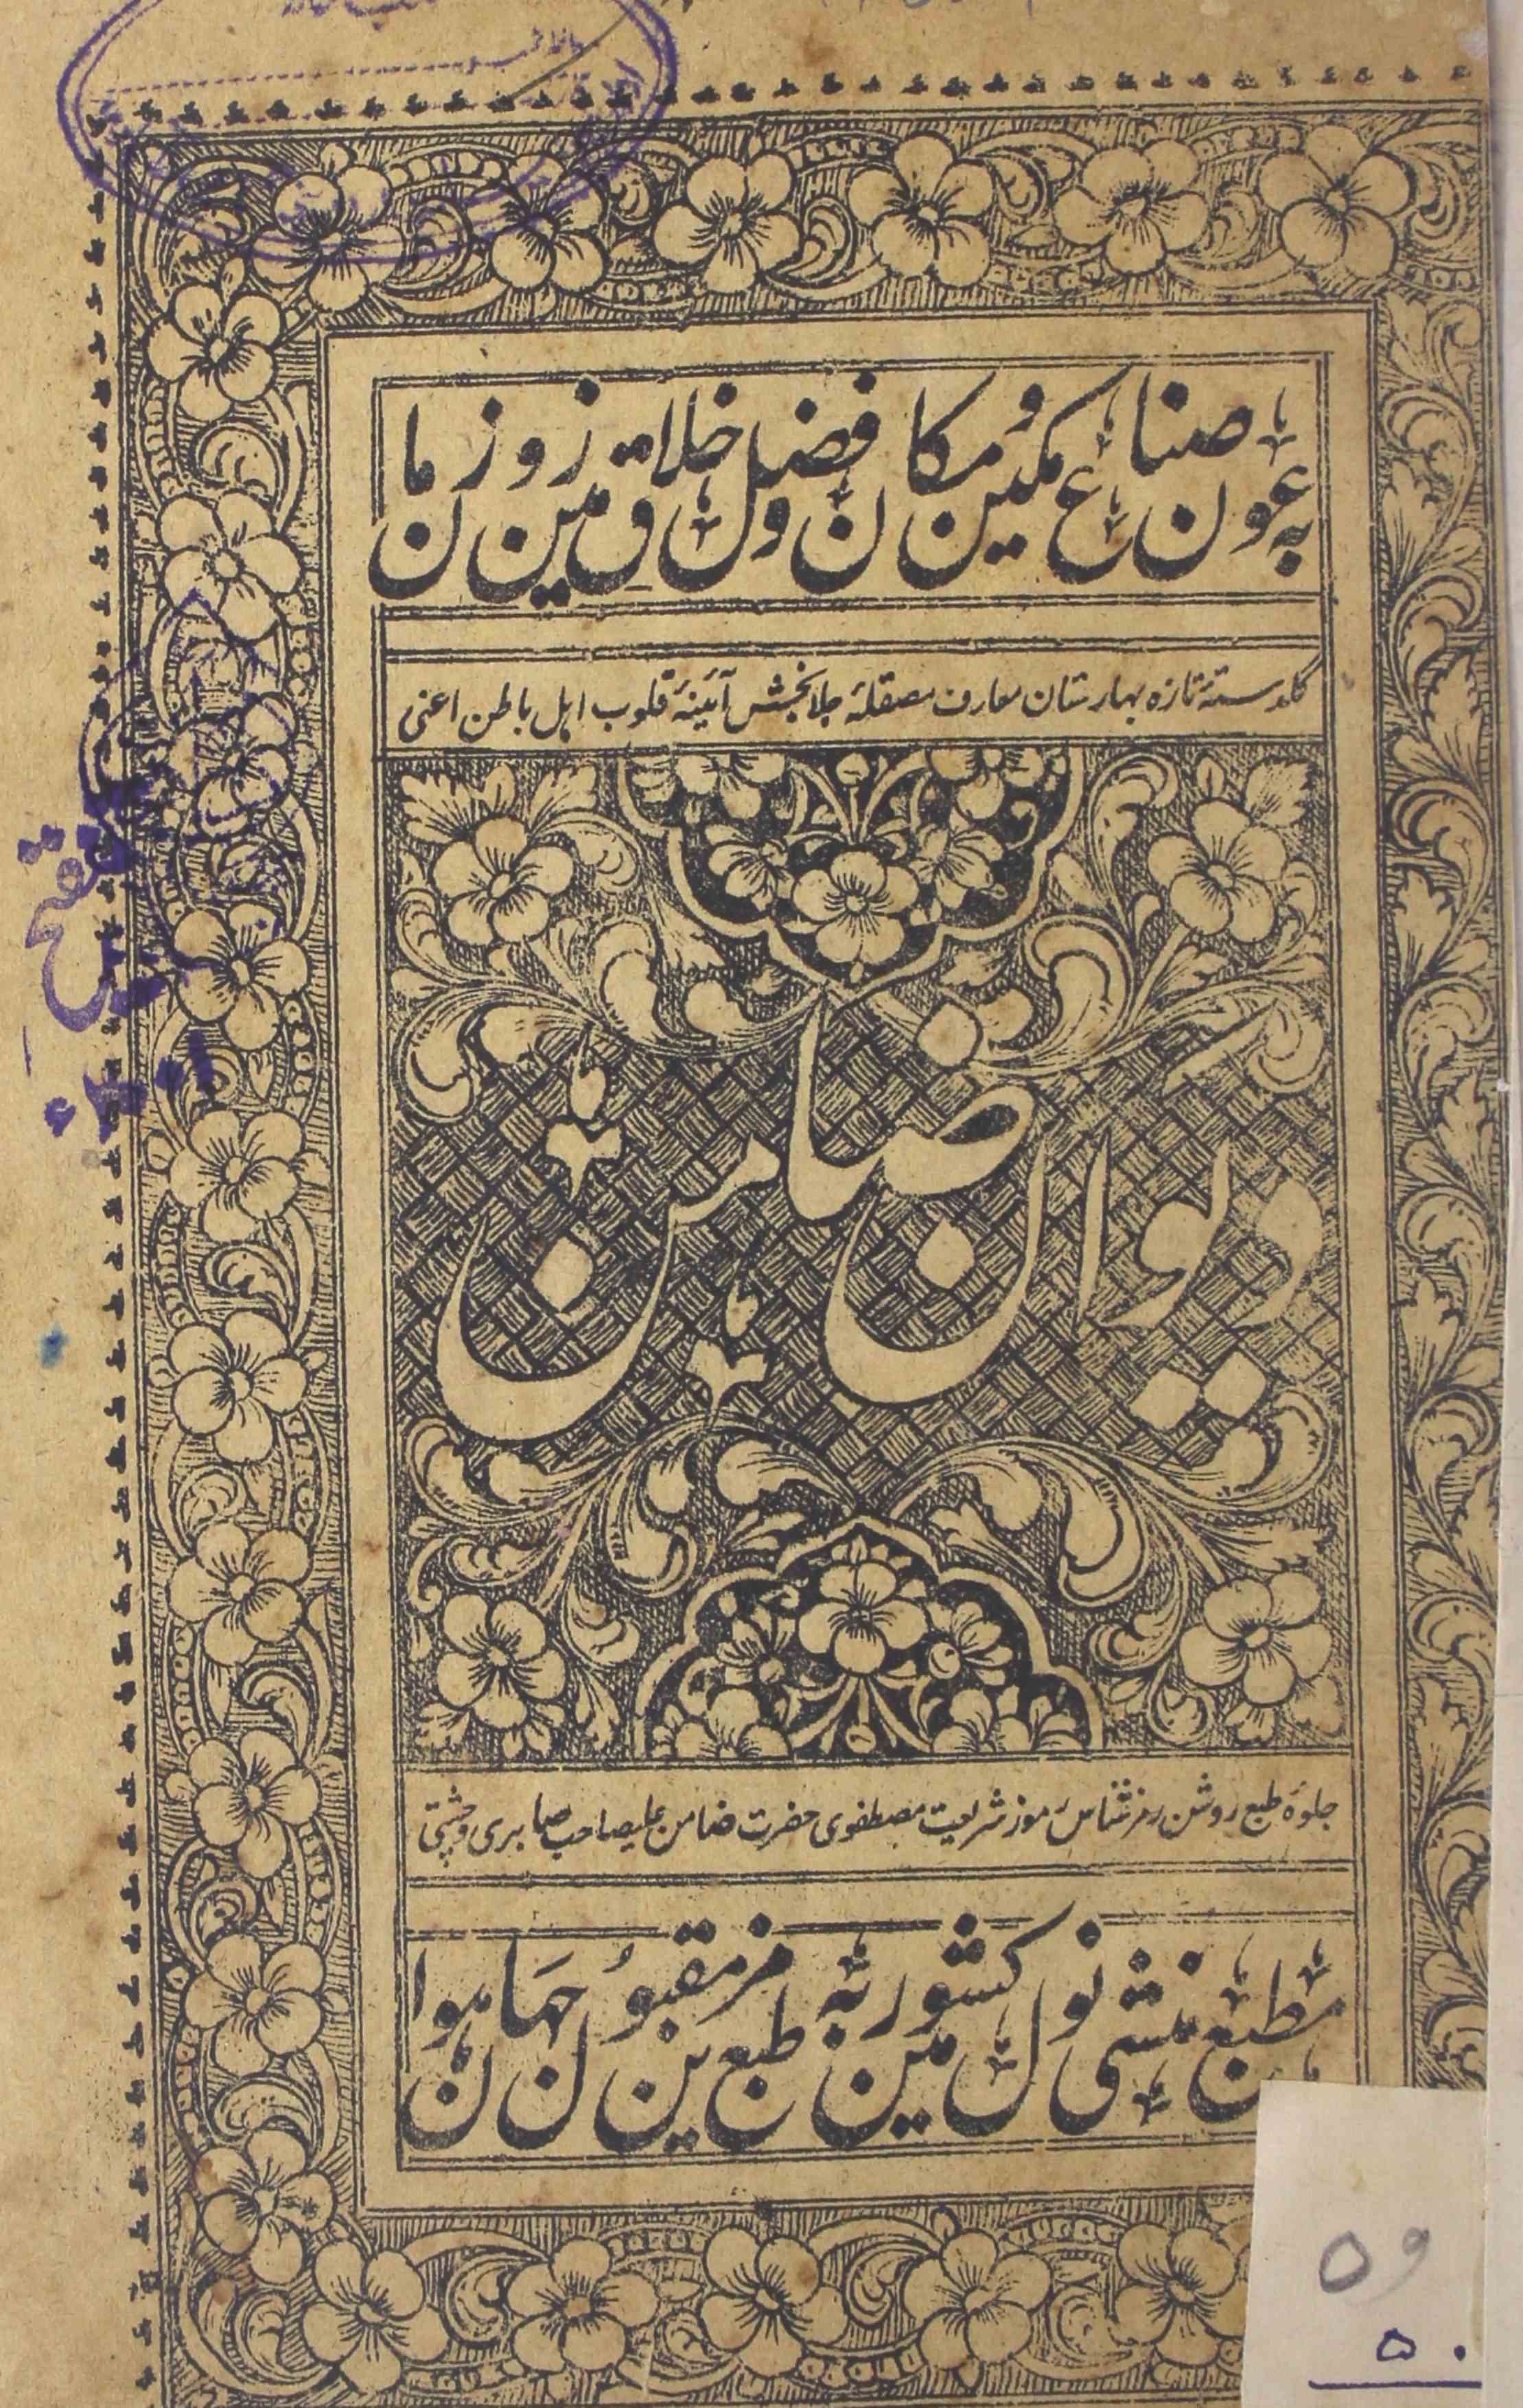 بعون صناع مکین و مکان و فضل خلاق زمین و زمان
گلدستۂ تازہ بہارستان معارف مصقلۂ جلا بخش آئینۂ قلوب اہل باطن اعنی
دیوان ضامن
جلوۂ طبع روشن رمز شناس رموز شریعت مصطفوی حضرت ضامن علیصاحب صابری و چشتی
مطبع منشی نول کشور مین بہ طبع مزین مقبول جہان ہوا
تنقیح
۵۹
۵۰